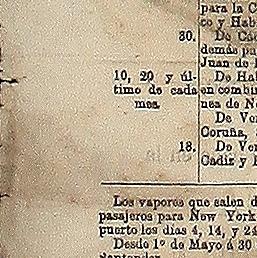 para la C
co y Hab
30. De Cád
demás pu
Juan de
10, 20 y úl- De Hab
timo de cada en combin
mes. nea de N
De Ver
Coruña,
18. De Ver
Cadiz y
Los vapores que salen d
pasajeros para New York
puerto los dias 4, 14, y 24
Desde 1º de Mayo á 30
Santander